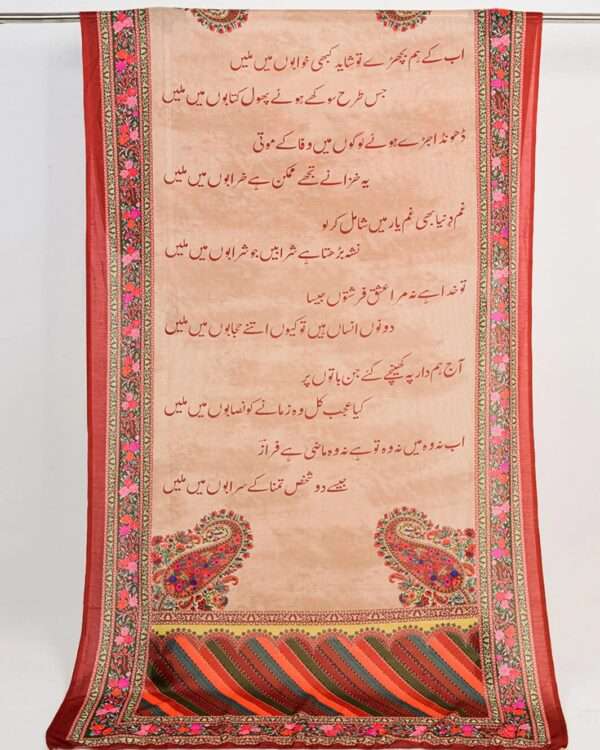 اب کے ہم بچھڑے تو شاید کبھی خوابوں میں ملیں
جس طرح سوکھے ہوئے پھول کتابوں میں ملیں
ڈھونڈ اجڑے ہوئے لوگوں میں وفا کے موتی
یہ خزانے تجھے ممکن ہے خرابوں میں ملیں
غم دنیا بھی غم یار میں شامل کر لو
نشہ بڑھتا ہے شرابیں جو شرابوں میں ملیں
تو خدا ہے نہ مرا عشق فرشتوں جیسا
دونوں انساں ہیں تو کیوں اتنے حجابوں میں ملیں
آج ہم دار پہ کھینچے گئے جن باتوں پر
کیا عجب کل وہ زمانے کو نصابوں میں ملیں
اب نہ وہ میں نہ وہ تو ہے نہ وہ ماضی ہے فراز
جیسے دو شخص تمنا کے سرابوں میں ملیں